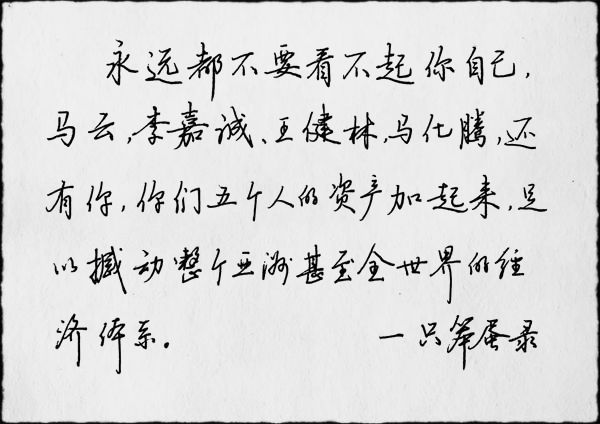 永远都不要看不起你自己，
马云，李嘉诚、王健林，马化腾，还
有你，你们五个人的资产加起来，足
以撼动整个亚洲甚至全世界的经
济体系。 一只笨蛋录